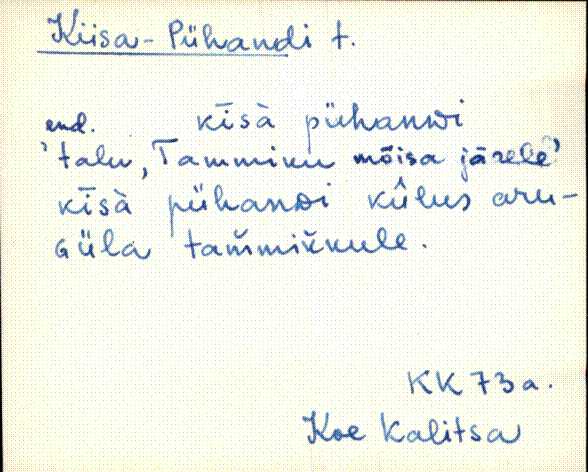 Kiisa-Pühandi t.
end. kīsà pühanᴅi
'talu, Tammiku mõisa järele'
kīsà pühanᴅi kûlus aru-
ɢüla tam̆mik̆kule.
KK 73 a.
Koe Kalitsa